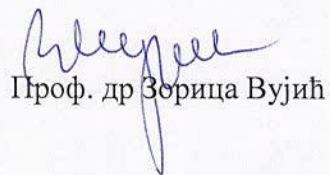 Проф. др Зорица Вујић